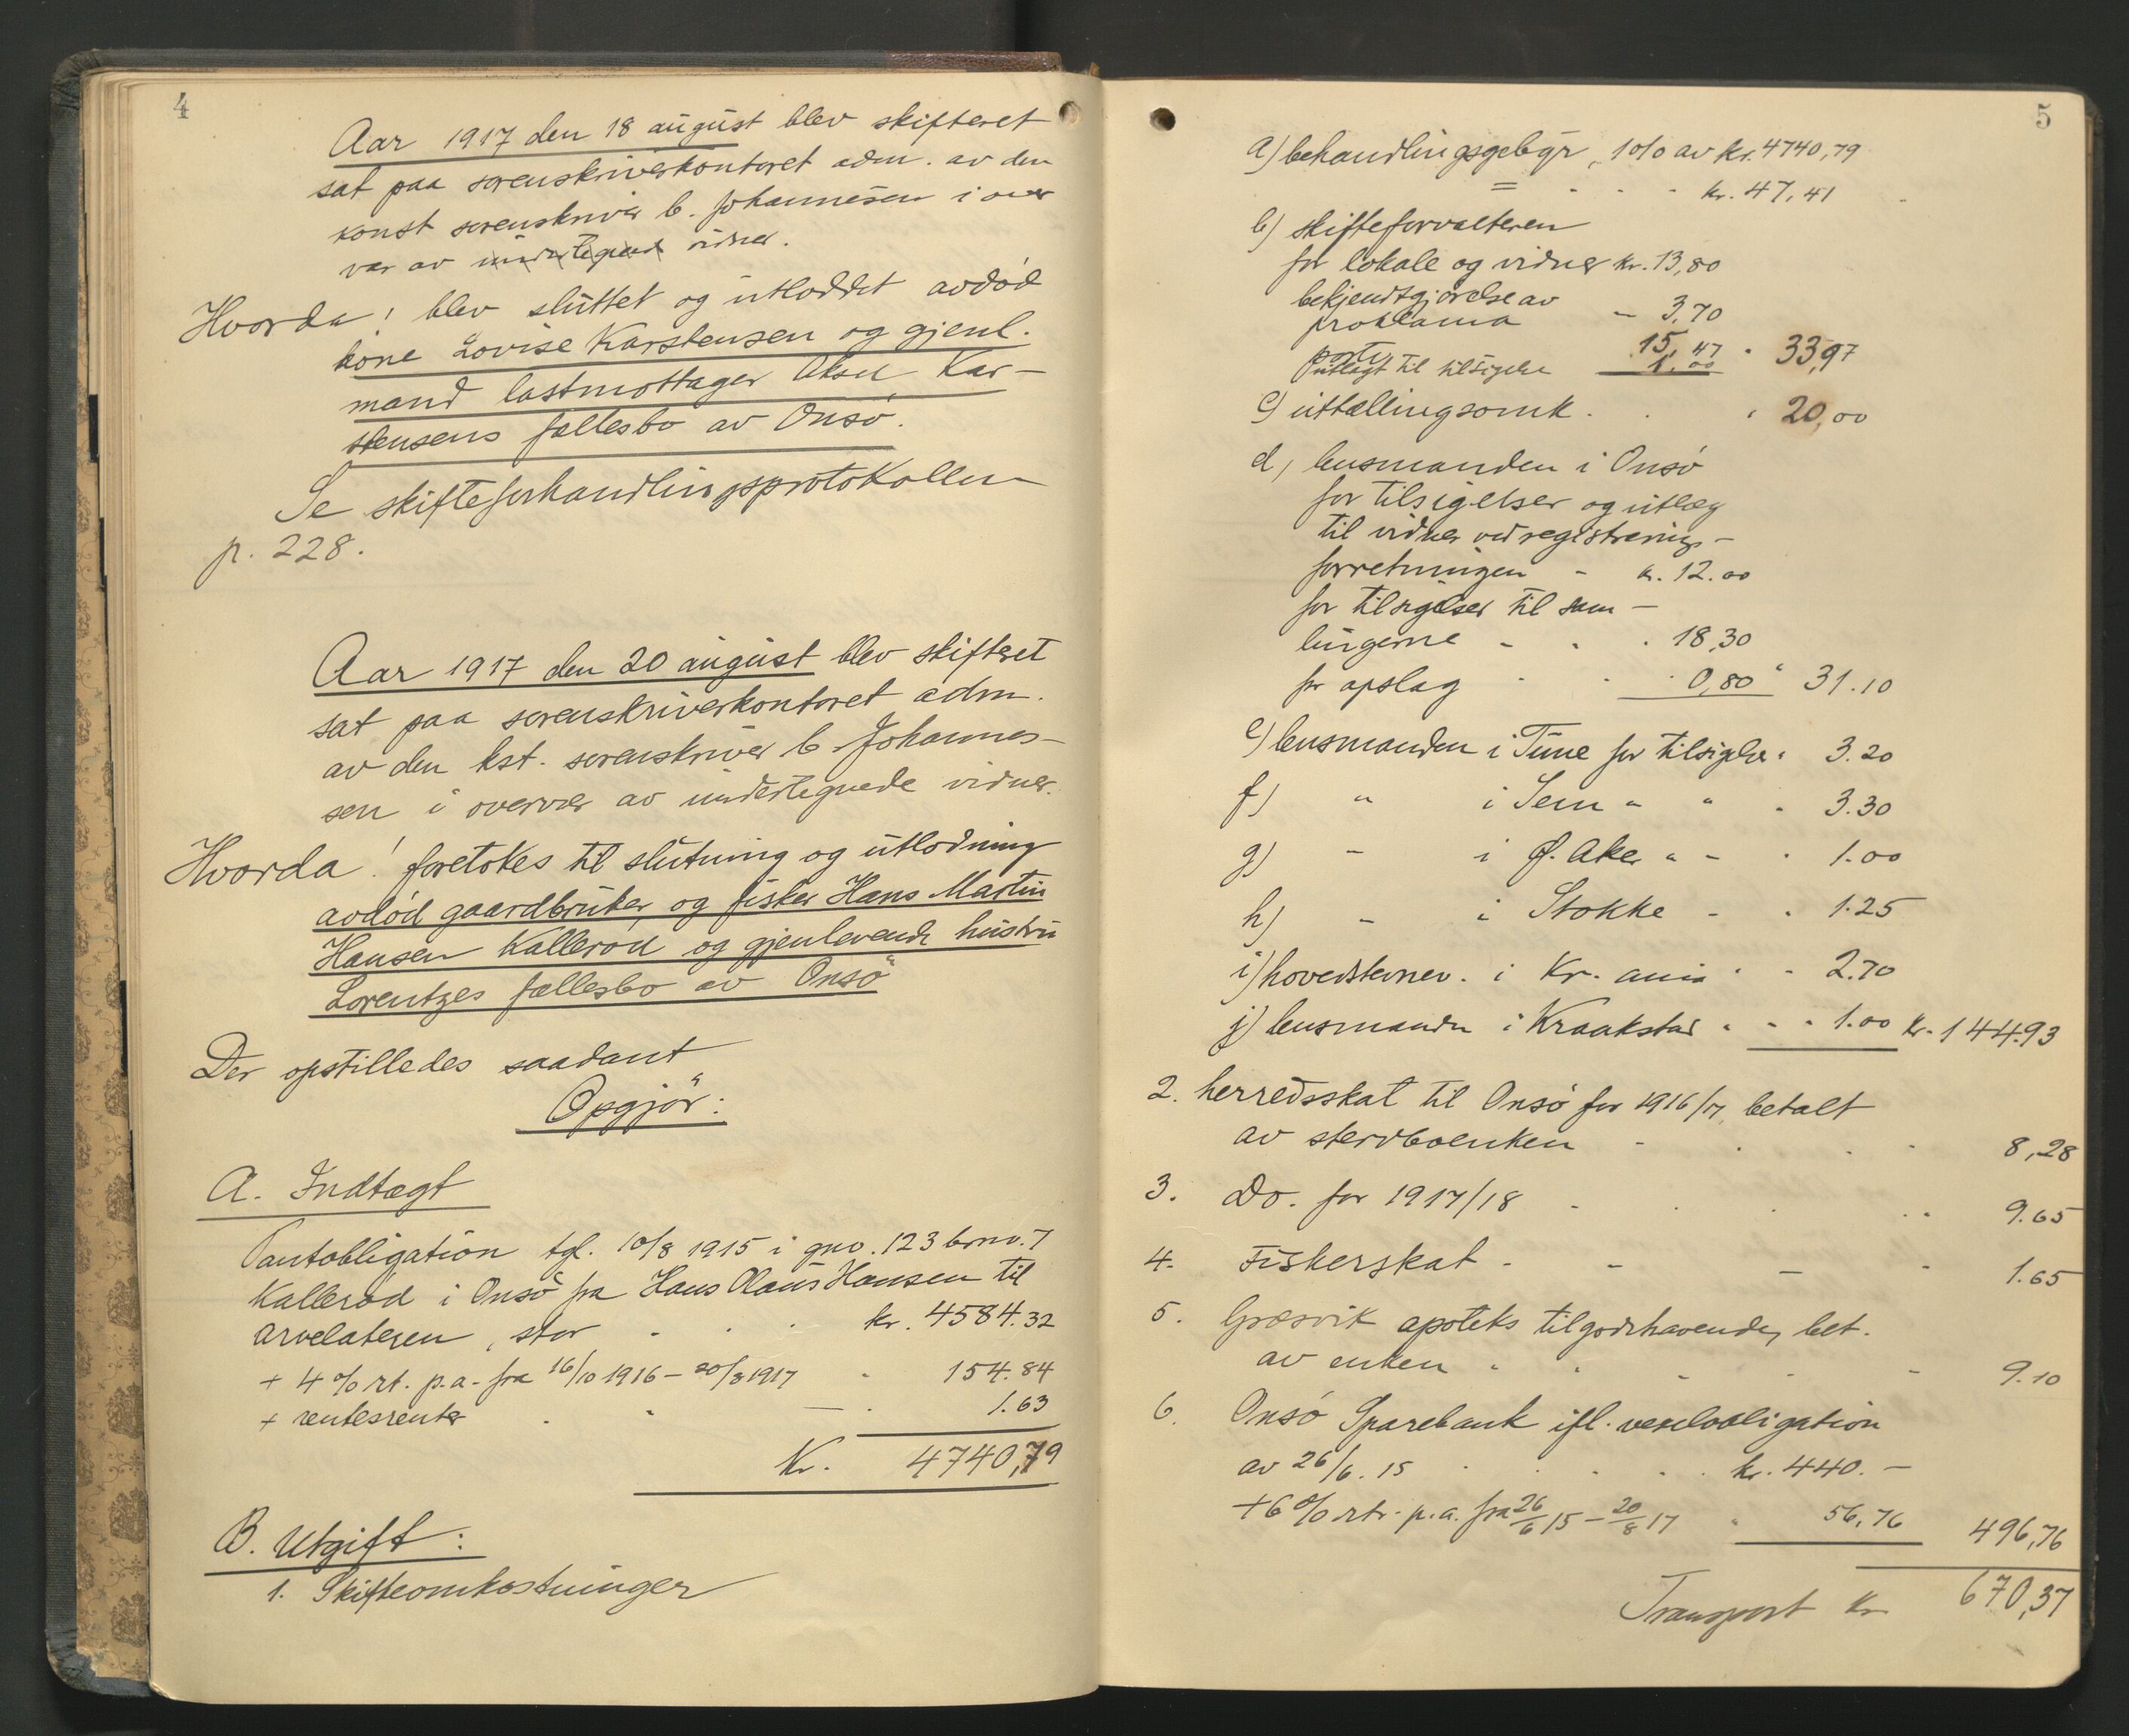 4
Aar 1917 den 18 august blev skifteret
sat paa sorenskriverkontoret adm. av den
konst sorenskriver C. Johannesen i over
vær av undertegned vidner.
Hvorda! blev sluttet og utloddet avdöd
kone Lovise Karstensen og gjenl.
mand lastmottager Aksel Kar-
stensens fællesbo av Onsö.
Se skifteforhandlingsprotokollen
p. 228.
Aar 1917 den 20 august blev skifteret
sat paa sorenskriverkontoret adm.
av den kst. sorenskriver C. Johannes-
sen i overvær av undertegnede vidner.
Hvorda! foretokes til slutning og utlodning
avdöd gaardbruker og fisker Hans Martin
Hansen Kalleröd og gjenlevende hustru
Lorentzes fællesbo av Onsö
Der opstilledes saadant
Opgjör:
A. Indtægt
Pantobligation tgl. 10/8 1915 i gno. 123 brno. 7
Kalleröd i Onsö fra Hans Olaus Hansen til
arvelateren, stor - - - kr. 4584.32
+ 4 % rt. p.a. fra 16/10 1916 - 20/8 1917 - 154.84
+ rentesrenter - - - 1.63
Kr. 4740,79
B. Utgift:
1. Skifteomkostninger
5
a) behandlingsgebyr, 1 0/0 av kr. 4740,79
= - - - kr. 47,41
b) skifteforvalteren
for lokale og vidner kr. 13,80
bekjendtgjörelse av
proklama - 3,70
porto 15,47 " 33,97
utlagt til tilsigelse 1.00
c) uttællingsomk. . " 20,00
d) lensmanden i Onsö
for tilsigelser og utlæg
til vidner ved registrerings-
forretningen - kr. 12.00
for tilsigelser til sam-
lingerne - - - 18,30
for opslag - - - 0,80 " 31.10
e) lensmanden i Tune for tilsigelse " 3.20
f) " i Sem " " " 3.30
g) - i Ø. Aker " - " 1.00
h) - i Stokke - " 1.25
i) hovedstevnev. i Kr. ania " - 2.70
j) lensmanden i Kraakstad " - " 1.00 kr. 144.93
2. herredsskat til Onsö for 1916/17, betalt
av stervboenken - - - - 8,28
3. Do. for 1917/18 - - - 9.65
4. Fiskerskat - - - - 1.65
5. Græsvik apoteks tilgodehavende, bet.
av enken - - - - - 9.10
6. Onsö Sparebank ifl. vexelobligation
av 26/6. 15 - - - - kr. 440.-
+ 6 % rtr. p.a. fra 26/6 15 - 20/8 17 " 56,76 496,76
Transport kr 670,37